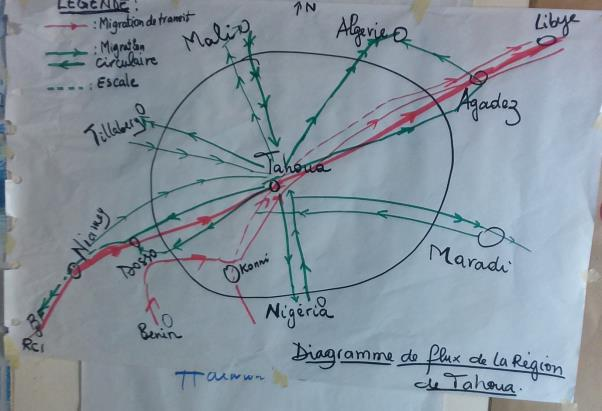 LEGENDE:
: Migration de transit
: Migration
circulaire
: Escale
N
Mali
Algerie
Libye
Agadez
Tillabery
Tahoua
Niamey
Dosso
Konni
Maradi
RCI
Benin
Nigéria
Diagramme de flux de la Région
de Tahoua.